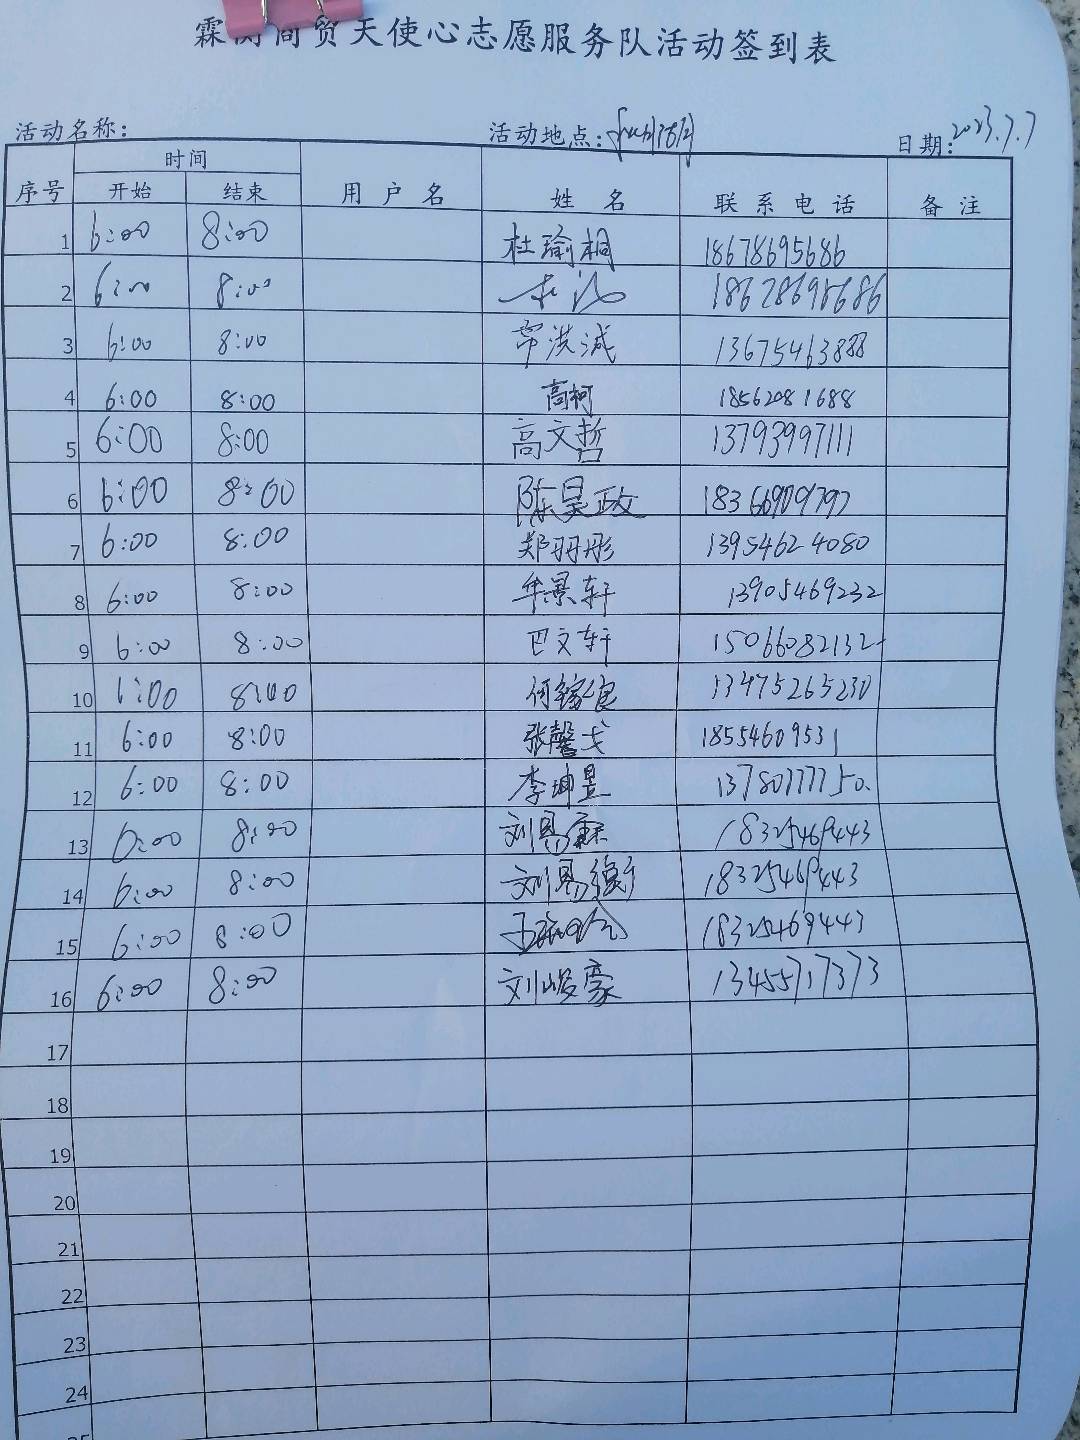 霖 商贸天使心志愿服务队活动签到表
活动名称: 活动地点: 日期: 2023.7.7
序号 时间 用户名 姓名 联系电话 备注
开始 结束
1 6:00 8:00 杜瑜桐 18678695686
2 6:00 8:00 18678695686
3 6:00 8:00 洪诚 13675463888
4 6:00 8:00 高柯 18562081688
5 6:00 8:00 高文哲 13793997111
6 6:00 8:00 陈昊政 18366909797
7 6:00 8:00 郑羽彤 13954624080
8 6:00 8:00 牟景轩 13905469232
9 6:00 8:00 巴文轩 15066082132
10 6:00 8:00 何 13475265230
11 6:00 8:00 张馨戈 18554609531
12 6:00 8:00 李坤昱 13780777150
13 6:00 8:00 刘易霖 18325469443
14 6:00 8:00 刘易 18325469443
15 6:00 8:00 18325469443
16 6:00 8:00 刘峻豪 13455717373
17
18
19
20
21
22
23
24